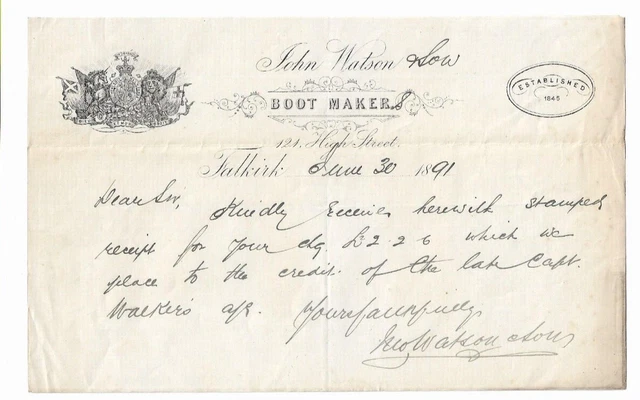 John Watson & Son
BOOT MAKERS
ESTABLISHED
1845
121, High Street,
Falkirk June 30 1891
Dear Sir, Kindly receive herewith stamped
receipt for your chq £2 2 6 which we
place to the credit of the late Capt.
Walker's a/c. Yours faithfully
Jno Watson & Son